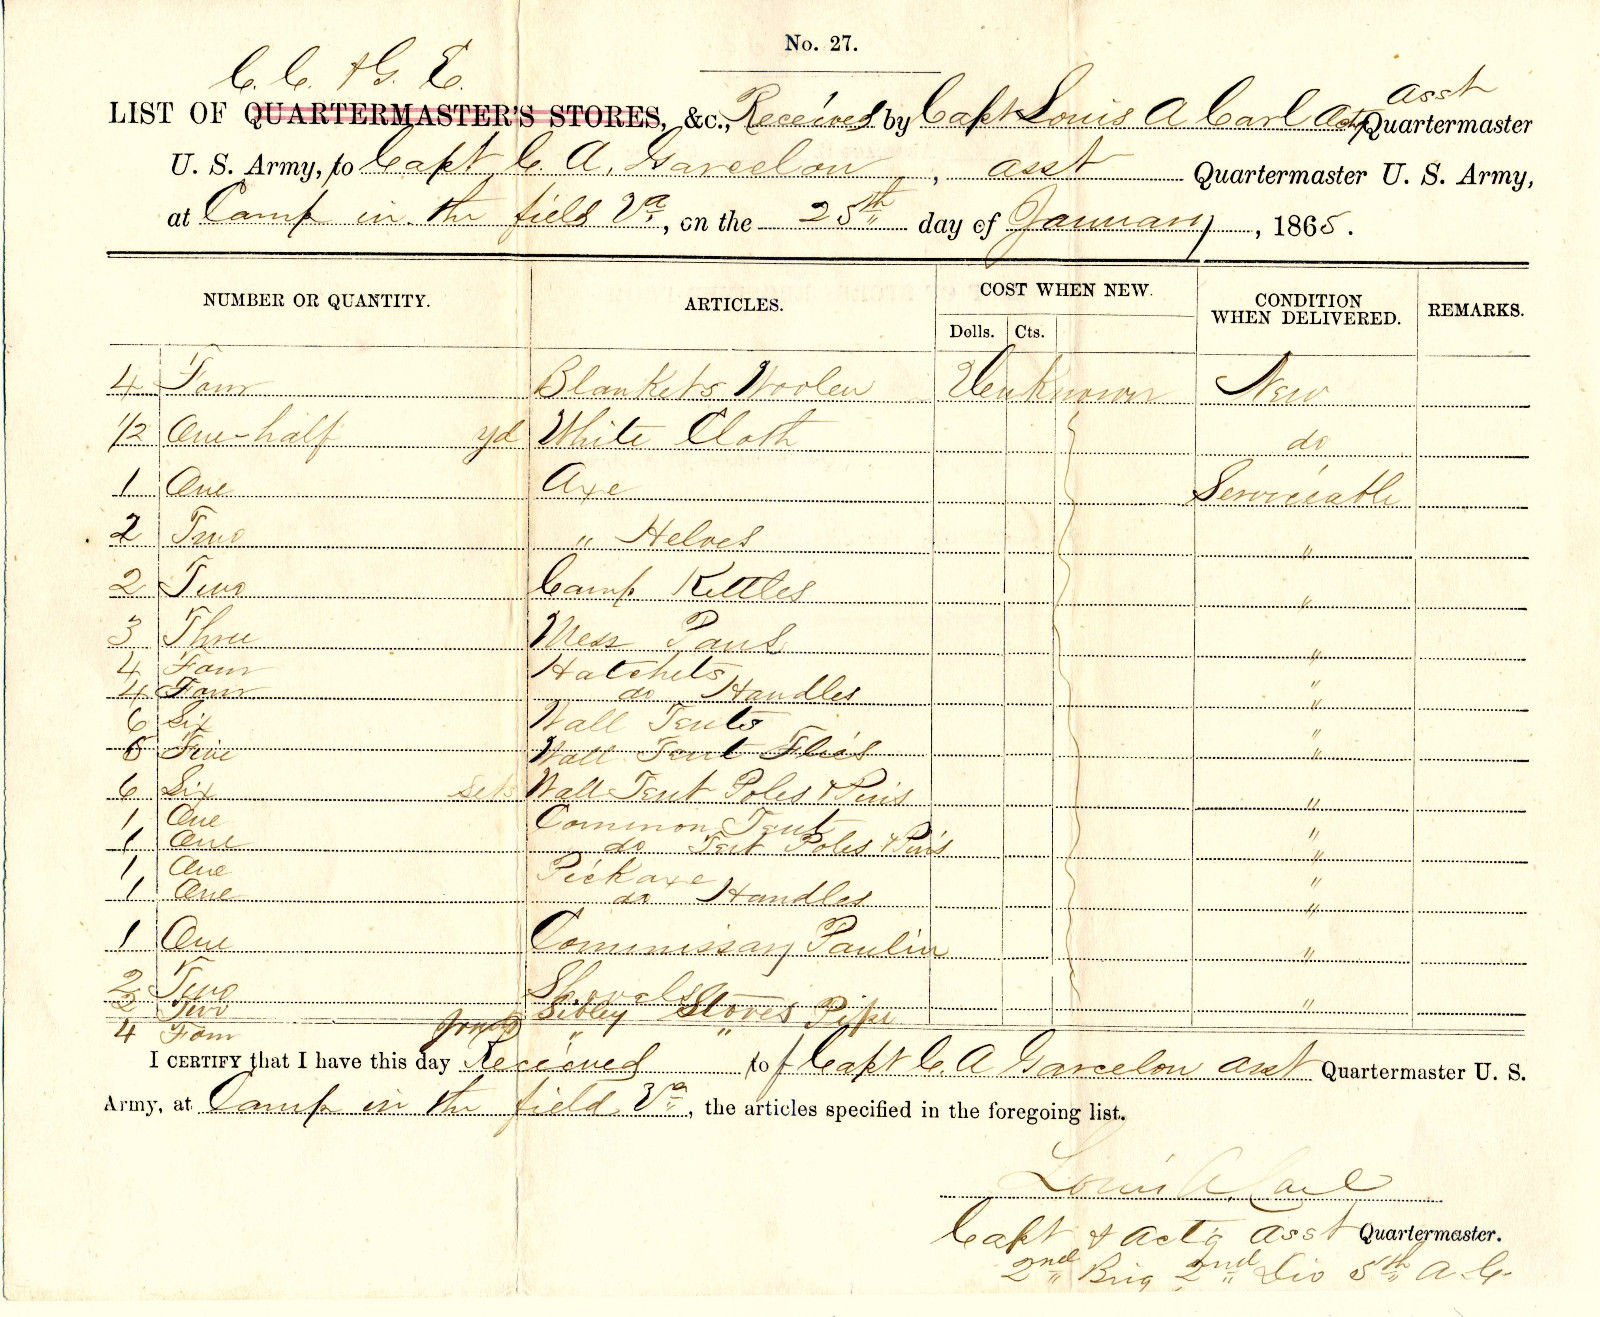 No. 27.
C. C. & G. E.
LIST OF QUARTERMASTER'S STORES, &c., Received by Capt Louis A Carl Actg asst Quartermaster
U. S. Army, to Capt C. A. Garcelon, asst Quartermaster U. S. Army,
at Camp in the field Va, on the 25th day of January, 1865.
NUMBER OR QUANTITY. ARTICLES. COST WHEN NEW. CONDITION WHEN DELIVERED. REMARKS.
Dolls. Cts.
4 Four Blankets Woolen Unknown New
1/2 One-half yd White Cloth do
1 One Axe Serviceable
2 Two " Helves "
2 Two Camp Kettles "
3 Three Mess Pans "
4 Four Hatchets "
4 Four do Handles "
6 Six Wall Tents "
5 Five Wall Tent Flies "
6 Six sets Wall Tent Poles & Pins "
1 One Common Tent "
1 One do Tent Poles & Pins "
1 One Pickaxe "
1 One do Handles "
1 One Commissary Paulin "
2 Two Shovels "
2 Two Sibley Stoves
4 Four joints " " Pipe
I CERTIFY that I have this day Received to f Capt C. A Garcelon asst Quartermaster U. S.
Army, at Camp in the field Va, the articles specified in the foregoing list.
Louis A Carl
Capt & actg asst Quartermaster.
2nd Brig 2nd Div 5th A. C.